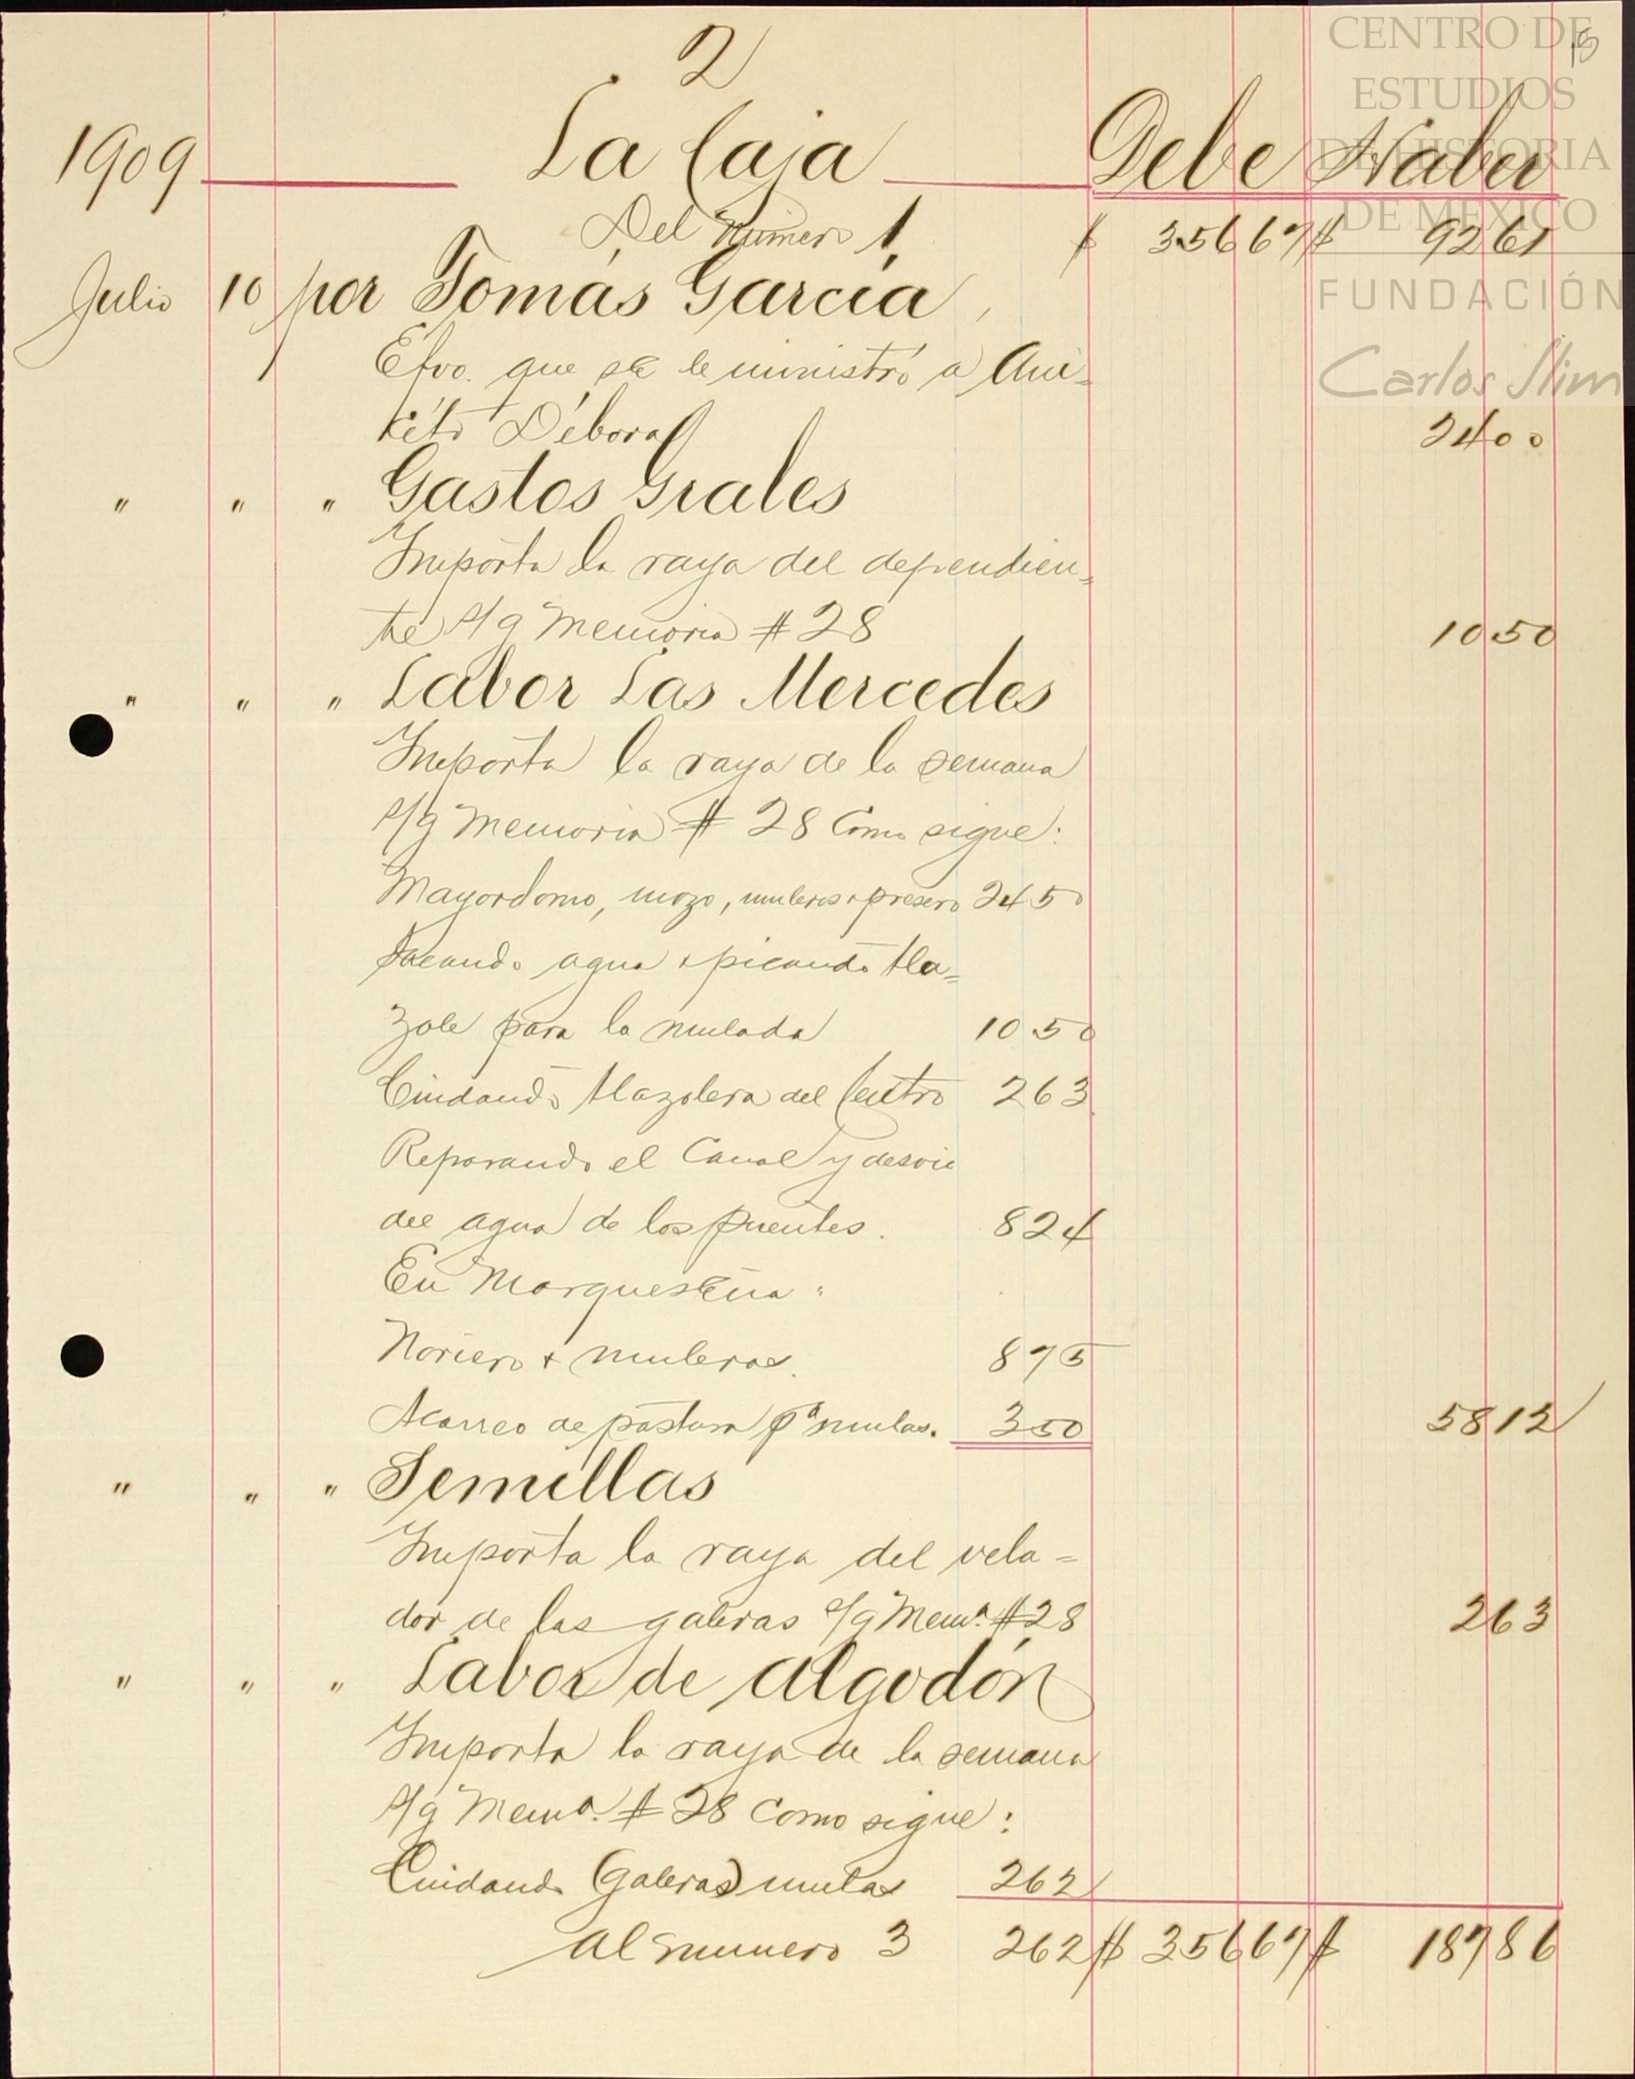 2
15
CENTRO DE
ESTUDIOS
DE HISTORIA
DE MÉXICO
FUNDACIÓN
Carlos Slim
1909 La Caja Debe Haber
Del número 1 $ 356 67 $ 92 61
Julio 10 por Tomás García,
Efvo. que se le ministró a
Débora 24 00
" " " Gastos Grales
Importa la raya del dependien=
te s/g Memoria # 28 10 50
" " " Labor Las Mercedes
Importa la raya de la semana
s/g Memoria # 28 Como sigue:
Mayordomo, mozo, muleros y presero 24 50
Sacando agua y picando tla=
zole para la mulada 10 50
Cuidando tlazolera del Centro 2 63
Reparando el Canal y desvie
del agua de los puentes. 8 24
En Marquesena:
Noriero y muleros. 8 75
Acarreo de pastura pª mulas. 3 50 58 12
" " " Semillas
Importa la raya del vela=
dor de las galeras s/g Memª. #28 2 63
" " " Labor de Algodón
Importa la raya de la semana
s/g Memª. # 28 Como sigue:
Cuidando (Galeras) mulas 2 62
Al numero 3 2 62 $ 356 67 $ 187 86